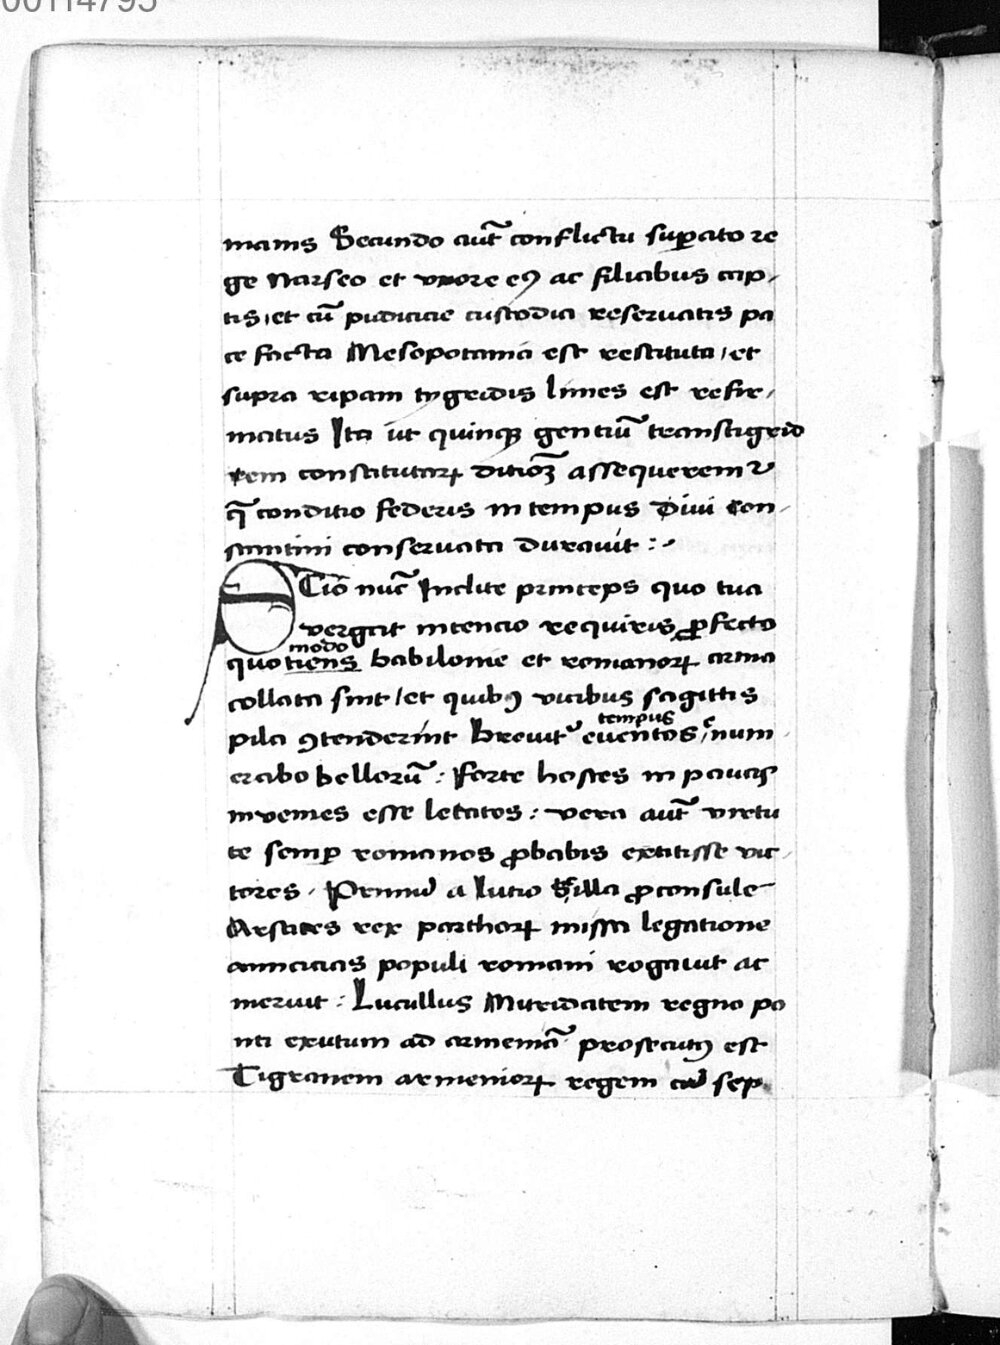 00114795
manis Secundo aut̄ conflictu sup̲ato re
ge Narseo et vxore eꝰ ac filiabus cap-
tis, et cū pudicicie custodia reseruatis pa
ce facta Mesopotamia est restituta, et
supra ripam tygridis limes est refir-
matus Ita ut quinqꝫ gentiū transtigrid
tem constitutaꝝ ditioꝫ assequerem᷑
q̄ conditio federis in tempus Diui Con-
stantini conseruata durauit :
Ciō nūc Inclite princeps quo tua
vergat intencio requiris ꝓfecto
modo
quotiens babilonie et romanoꝝ arma
collata sint, et quibꝰ vicibus sagittis
tempus
pila ꝯtenderint Breuit᷑ euentos, enum-
erabo belloꝝū : Forte hostes in paucis
inuenies esse letatos : vera aut̄ virtu
te semꝑ romanos ꝓbabis extitisse vic-
tores . Primū a Lutio Silla ꝓconsule
Arsaces rex parthoꝝ missa legatione
amicicias populi romani rogauit ac
meruit : Lucullus Mitridatem regno po
nti exutum ad armeniā prosecutꝰ est
Tigranem armenioꝝ regem cū sep